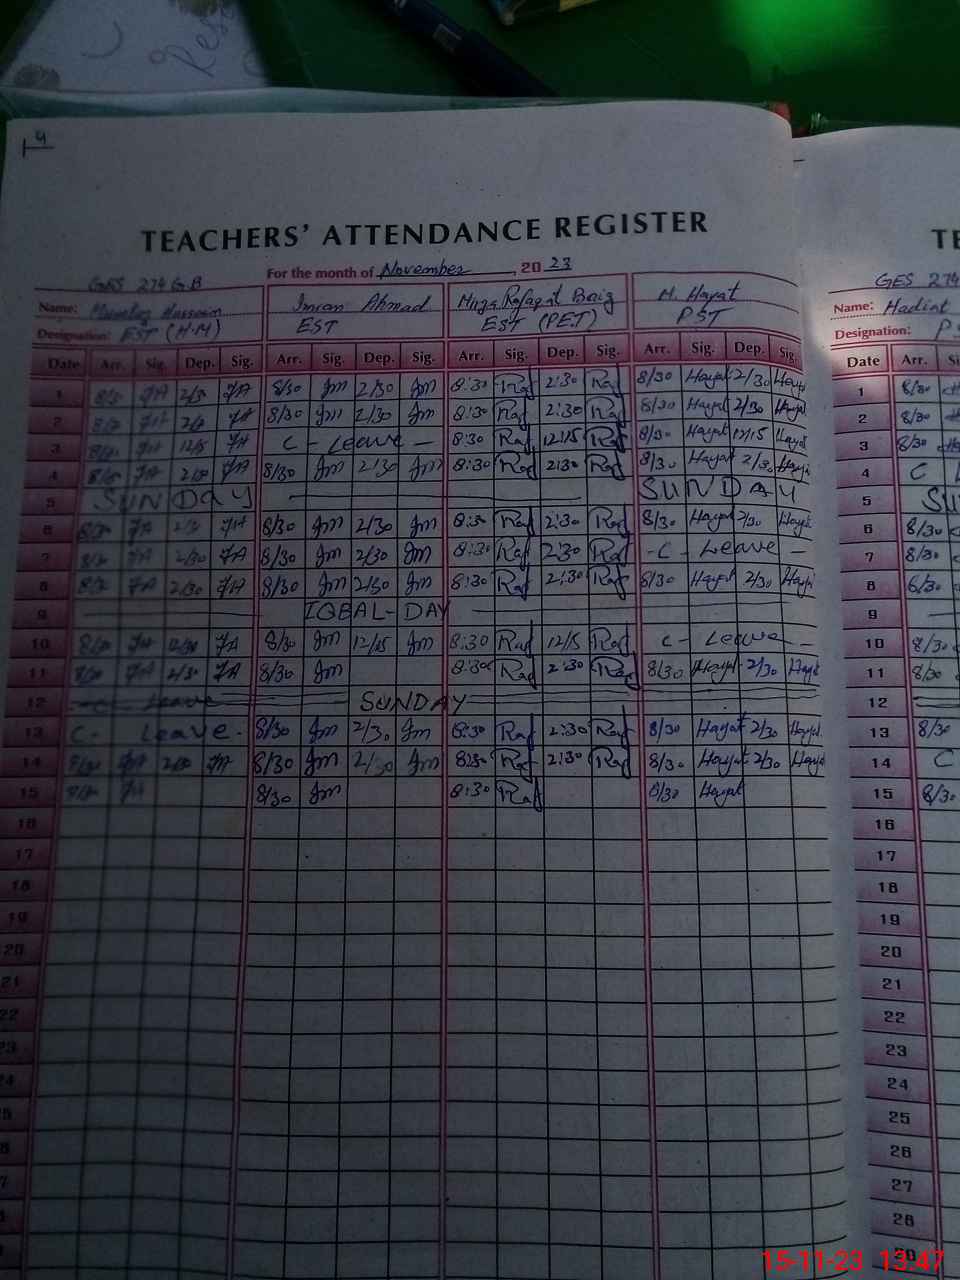 4
TEACHERS' ATTENDANCE REGISTER
For the month of November, 2023
GES 274 G.B
Name: Hussain Imran Ahmad Mirza Rafaqat Baig M. Hayat
Designation: EST (H.M) EST EST (PET) PST
Date Arr. Sig. Dep. Sig. Arr. Sig. Dep. Sig. Arr. Sig. Dep. Sig. Arr. Sig. Dep. Sig.
1 8/30 FA 2/30 FA 8/30 Jm 2/30 Jm 8:30 Raf 2:30 Raf 8/30 Hayat 2/30 Hayat
2 8/30 FA FA 8/30 Jm 2/30 Jm 8:30 Raf 2:30 Raf 8/30 Hayat 2/30 Hayat
3 FA 12/15 FA C - Leave - 8:30 Raf 12:15 Raf 8/30 Hayat 12/15 Hayat
4 FA 2/30 FA 8/30 Jm 2/30 Jm 8:30 Raf 2:30 Raf 8/30 Hayat 2/30 Hayat
5 SUNDAY SUNDAY
6 8/30 FA 2/30 FA 8/30 Jm 2/30 Jm 8:30 Raf 2:30 Raf 8/30 Hayat 2/30 Hayat
7 8/30 FA 2/30 FA 8/30 Jm 2/30 Jm 8:30 Raf 2:30 Raf - C - Leave -
8 8/30 FA 2/30 FA 8/30 Jm 2/30 Jm 8:30 Raf 2:30 Raf 8/30 Hayat 2/30 Hayat
9 IQBAL-DAY
10 8/30 FA FA 8/30 Jm 12/15 Jm 8:30 Raf 12/15 Raf C - Leave -
11 8/30 FA 2/30 FA 8/30 Jm 8:30 Raf 2:30 Raf 8/30 Hayat 2/30 Hayat
12 C Leave SUNDAY
13 C - Leave - 8/30 Jm 2/30 Jm 8:30 Raf 2:30 Raf 8/30 Hayat 2/30 Hayat
14 8/30 FA 2/30 FA 8/30 Jm 2/30 Jm 8:30 Raf 2:30 Raf 8/30 Hayat 2/30 Hayat
15 8/30 FA 8/30 Jm 8:30 Raf 8/30 Hayat
16
17
18
19
20
21
22
23
24
25
26
27
28
TE
GES 274
Name: Hadiat
Designation: P
Date Arr. Si
1 8/30
2 8/30
3 8/30
4 C L
5 SU
6 8/30
7 8/30
8 8/30
9
10 8/30
11 8/30
12
13 8/30
14 C
15 8/30
16
17
18
19
20
21
22
23
24
25
26
27
28
29
15-11-23 13:47